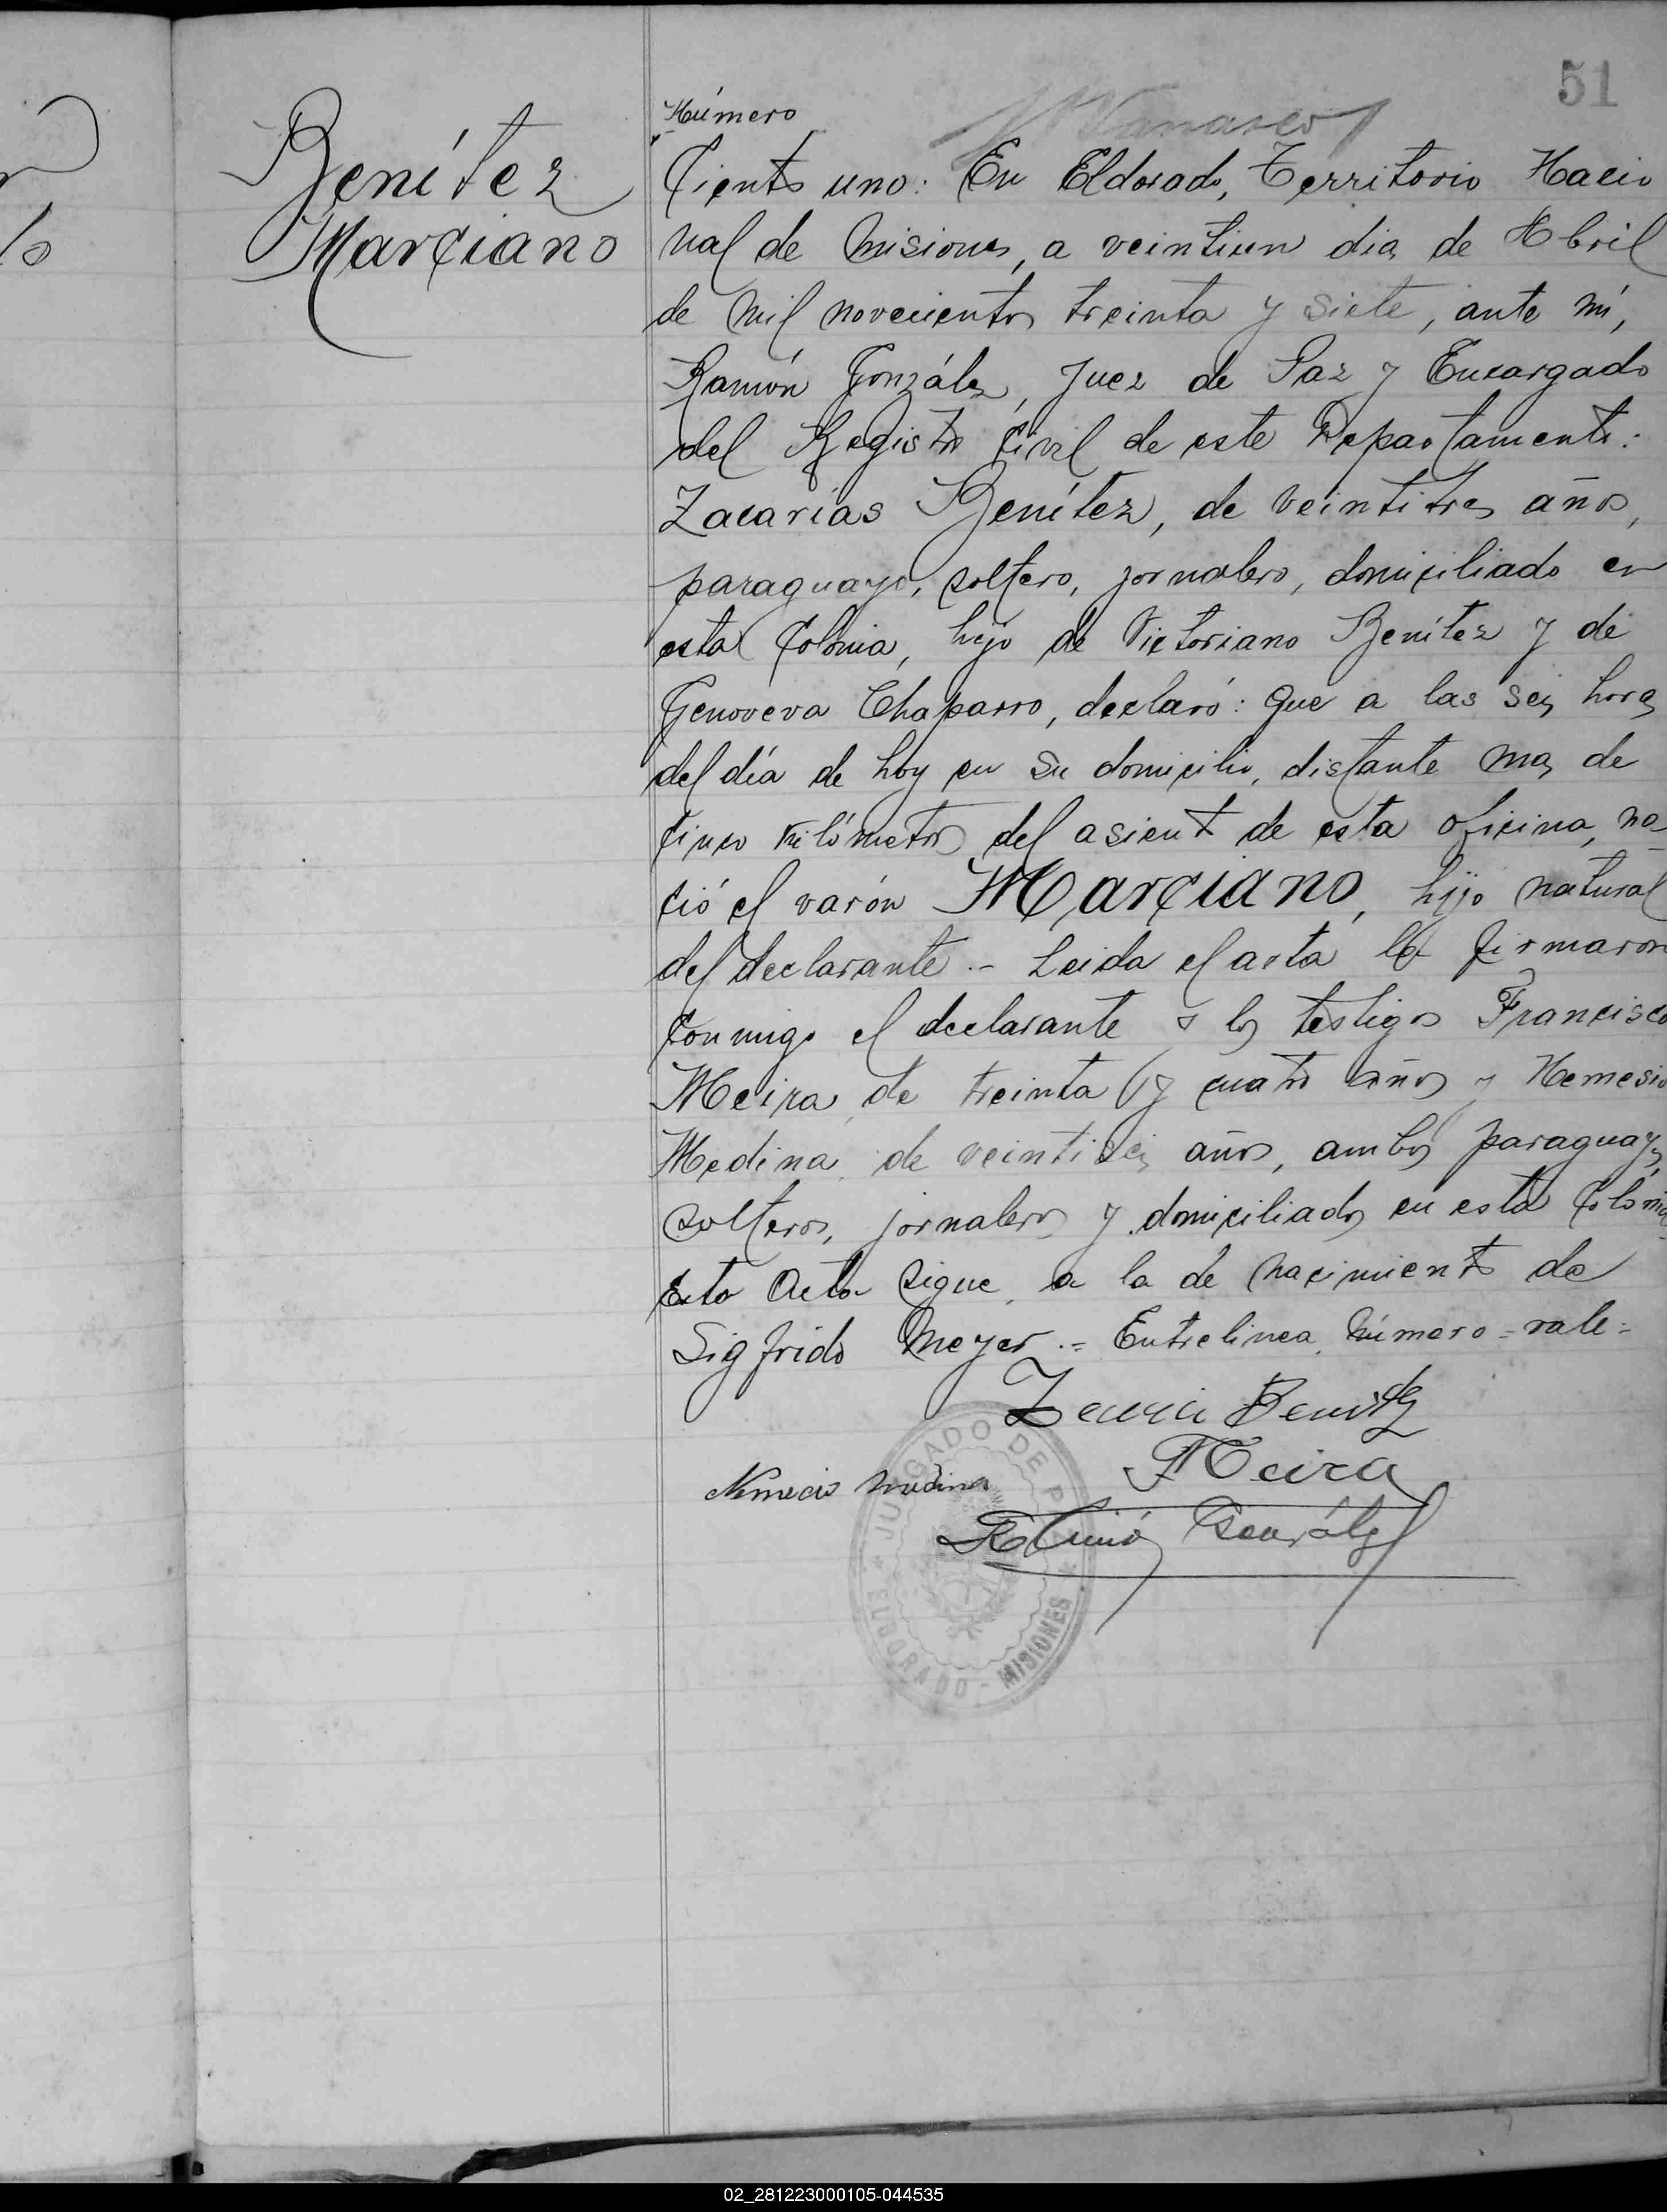 51
Benítez
Marciano
Número
Ciento uno: En Eldorado, Territorio Nacio
nal de Misiones, a veintiun dias de Abril
de mil novecientos treinta y siete, ante mí,
Ramón González, Juez de Paz y Encargado
del Registro Civil de este Departamento:
Zacarías Benítez, de veintitres años,
paraguayo, soltero, jornalero, domiciliado en
esta Colonia, hijo de Victoriano Benítez y de
Genoveva Chaparro, declaró: Que a las seis horas
del día de hoy en su domicilio, distante mas de
cinco kilómetros del asiento de esta oficina, na-
ció el varón Marciano, hijo natural
del declarante.- Leida el acta la firmaron
conmigo el declarante y los testigos Francisco
Meira, de treinta y cuatro años y Nemesio
Medina, de veintiseis años, ambos paraguayos,
solteros, jornaleros y domiciliados en esta Colonia
Esta Acta sigue a la de nacimiento de
Sigfrido Meyer.- Entrelinea Número = vale =
Benitez
FMeira
Medina
Ramón González
JUZGADO DE PAZ
ELDORADO - MISIONES
02_281223000105-044535